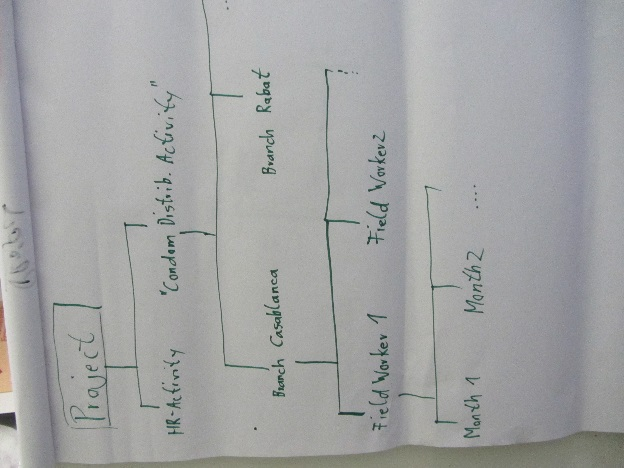 Project
HR-Activity "Condom Distrib. Activity"
Branch Casablanca Branch Rabat ...
Field Worker 1 Field Worker 2 ...
Month 1 Month 2 ....